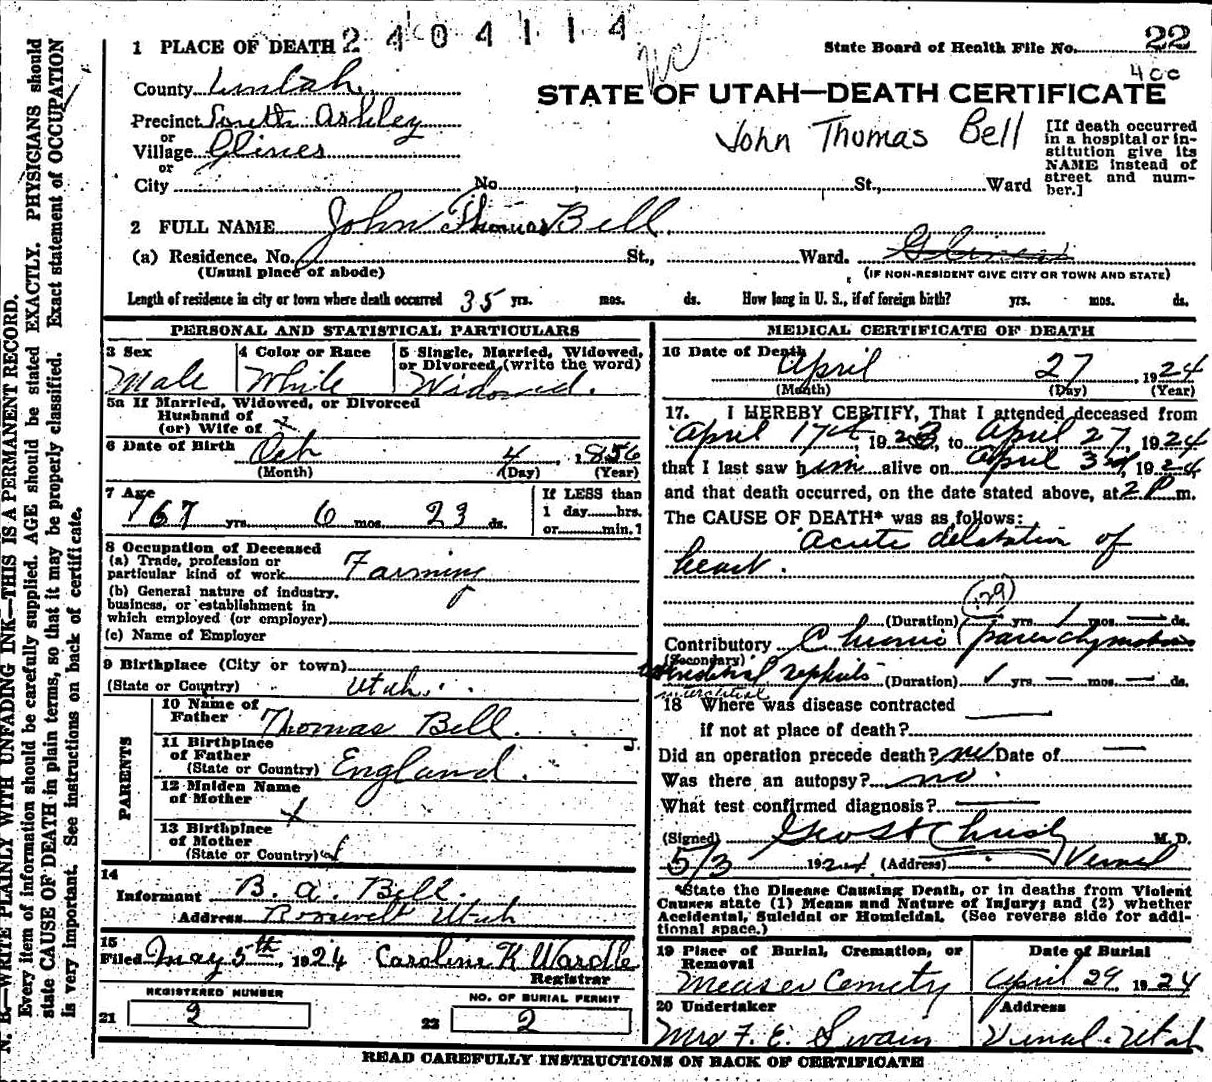 2404114
1 PLACE OF DEATH
State Board of Health File No. 22
400
County Uintah
STATE OF UTAH—DEATH CERTIFICATE
Precinct South Ashley
or
Village Glines
or
John Thomas Bell
[If death occurred in a hospital or institution give its NAME instead of street and number.]
City No. St., Ward
2 FULL NAME John Thomas Bell
(a) Residence. No. St., Ward. Glines
(Usual place of abode) (IF NON-RESIDENT GIVE CITY OR TOWN AND STATE)
Length of residence in city or town where death occurred 35 yrs. mos. ds. How long in U. S., if of foreign birth? yrs. mos. ds.
PERSONAL AND STATISTICAL PARTICULARS
3 Sex 4 Color or Race 5 Single, Married, Widowed, or Divorced (write the word)
Male White Widowed.
5a If Married, Widowed, or Divorced
Husband of
(or) Wife of x
6 Date of Birth Oct 4, 1856
(Month) (Day) (Year)
7 Age If LESS than
67 yrs. 6 mos. 23 ds. 1 day hrs.
or min.?
8 Occupation of Deceased
(a) Trade, profession or
particular kind of work Farming
(b) General nature of industry,
business, or establishment in
which employed (or employer)
(c) Name of Employer
9 Birthplace (City or town)
(State or Country) Utah.
PARENTS
10 Name of
Father Thomas Bell.
11 Birthplace
of Father
(State or Country) England.
12 Maiden Name
of Mother x
13 Birthplace
of Mother
(State or Country) x
14
Informant B. A. Bell.
Address Roosevelt Utah
15
Filed May 5th, 1924 Caroline K Wardle
Registrar
REGISTERED NUMBER NO. OF BURIAL PERMIT
21 2 22 2
MEDICAL CERTIFICATE OF DEATH
16 Date of Death
April 27, 1924
(Month) (Day) (Year)
17. I HEREBY CERTIFY, That I attended deceased from
April 17th 1923, to April 27, 1924
that I last saw him alive on April 3rd, 1924
and that death occurred, on the date stated above, at 2 P m.
The CAUSE OF DEATH* was as follows:
Acute delatation of
heart.
129
(Duration) yrs. 1 mos. — ds.
Contributory Chronic parenchymatous
(Secondary)
interstitial nephritis (Duration) 1 yrs. — mos. — ds.
interstitial
18 Where was disease contracted
if not at place of death?
Did an operation precede death? no Date of —
Was there an autopsy? no.
What test confirmed diagnosis? —
(Signed) M. D.
5/3 1924. (Address) Vernal
*State the Disease Causing Death, or in deaths from Violent
Causes state (1) Means and Nature of Injury; and (2) whether
Accidental, Suicidal or Homicidal. (See reverse side for additional space.)
19 Place of Burial, Cremation, or Removal Date of Burial
Cemetry April 29, 1924
20 Undertaker Address
Mrs F. E. Swain Vernal. Utah
READ CAREFULLY INSTRUCTIONS ON BACK OF CERTIFICATE
N. B.—WRITE PLAINLY WITH UNFADING INK—THIS IS A PERMANENT RECORD.
Every item of information should be carefully supplied. AGE should be stated EXACTLY. PHYSICIANS should
state CAUSE OF DEATH in plain terms, so that it may be properly classified. Exact statement of OCCUPATION
is very important. See instructions on back of certificate.